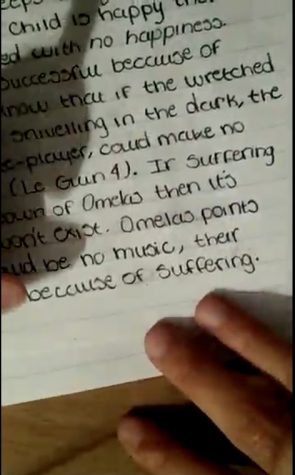 child is happy
with no happiness.
successful because of
know that if the wretched
snivelling in the dark, the
-player, could make no
(Le Guin 4). If suffering
town of Omelas then it's
won't exist. Omelas points
be no music, their
because of suffering.